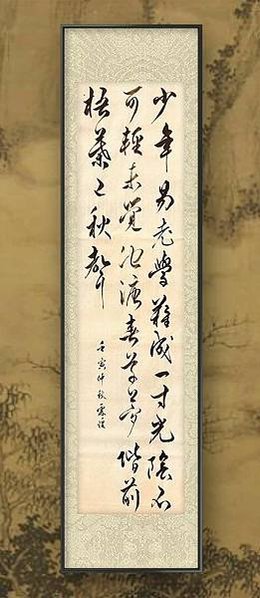 少年易老學難成一寸光陰不
可輕未覺池塘春草夢階前
梧葉已秋聲
壬寅仲秋